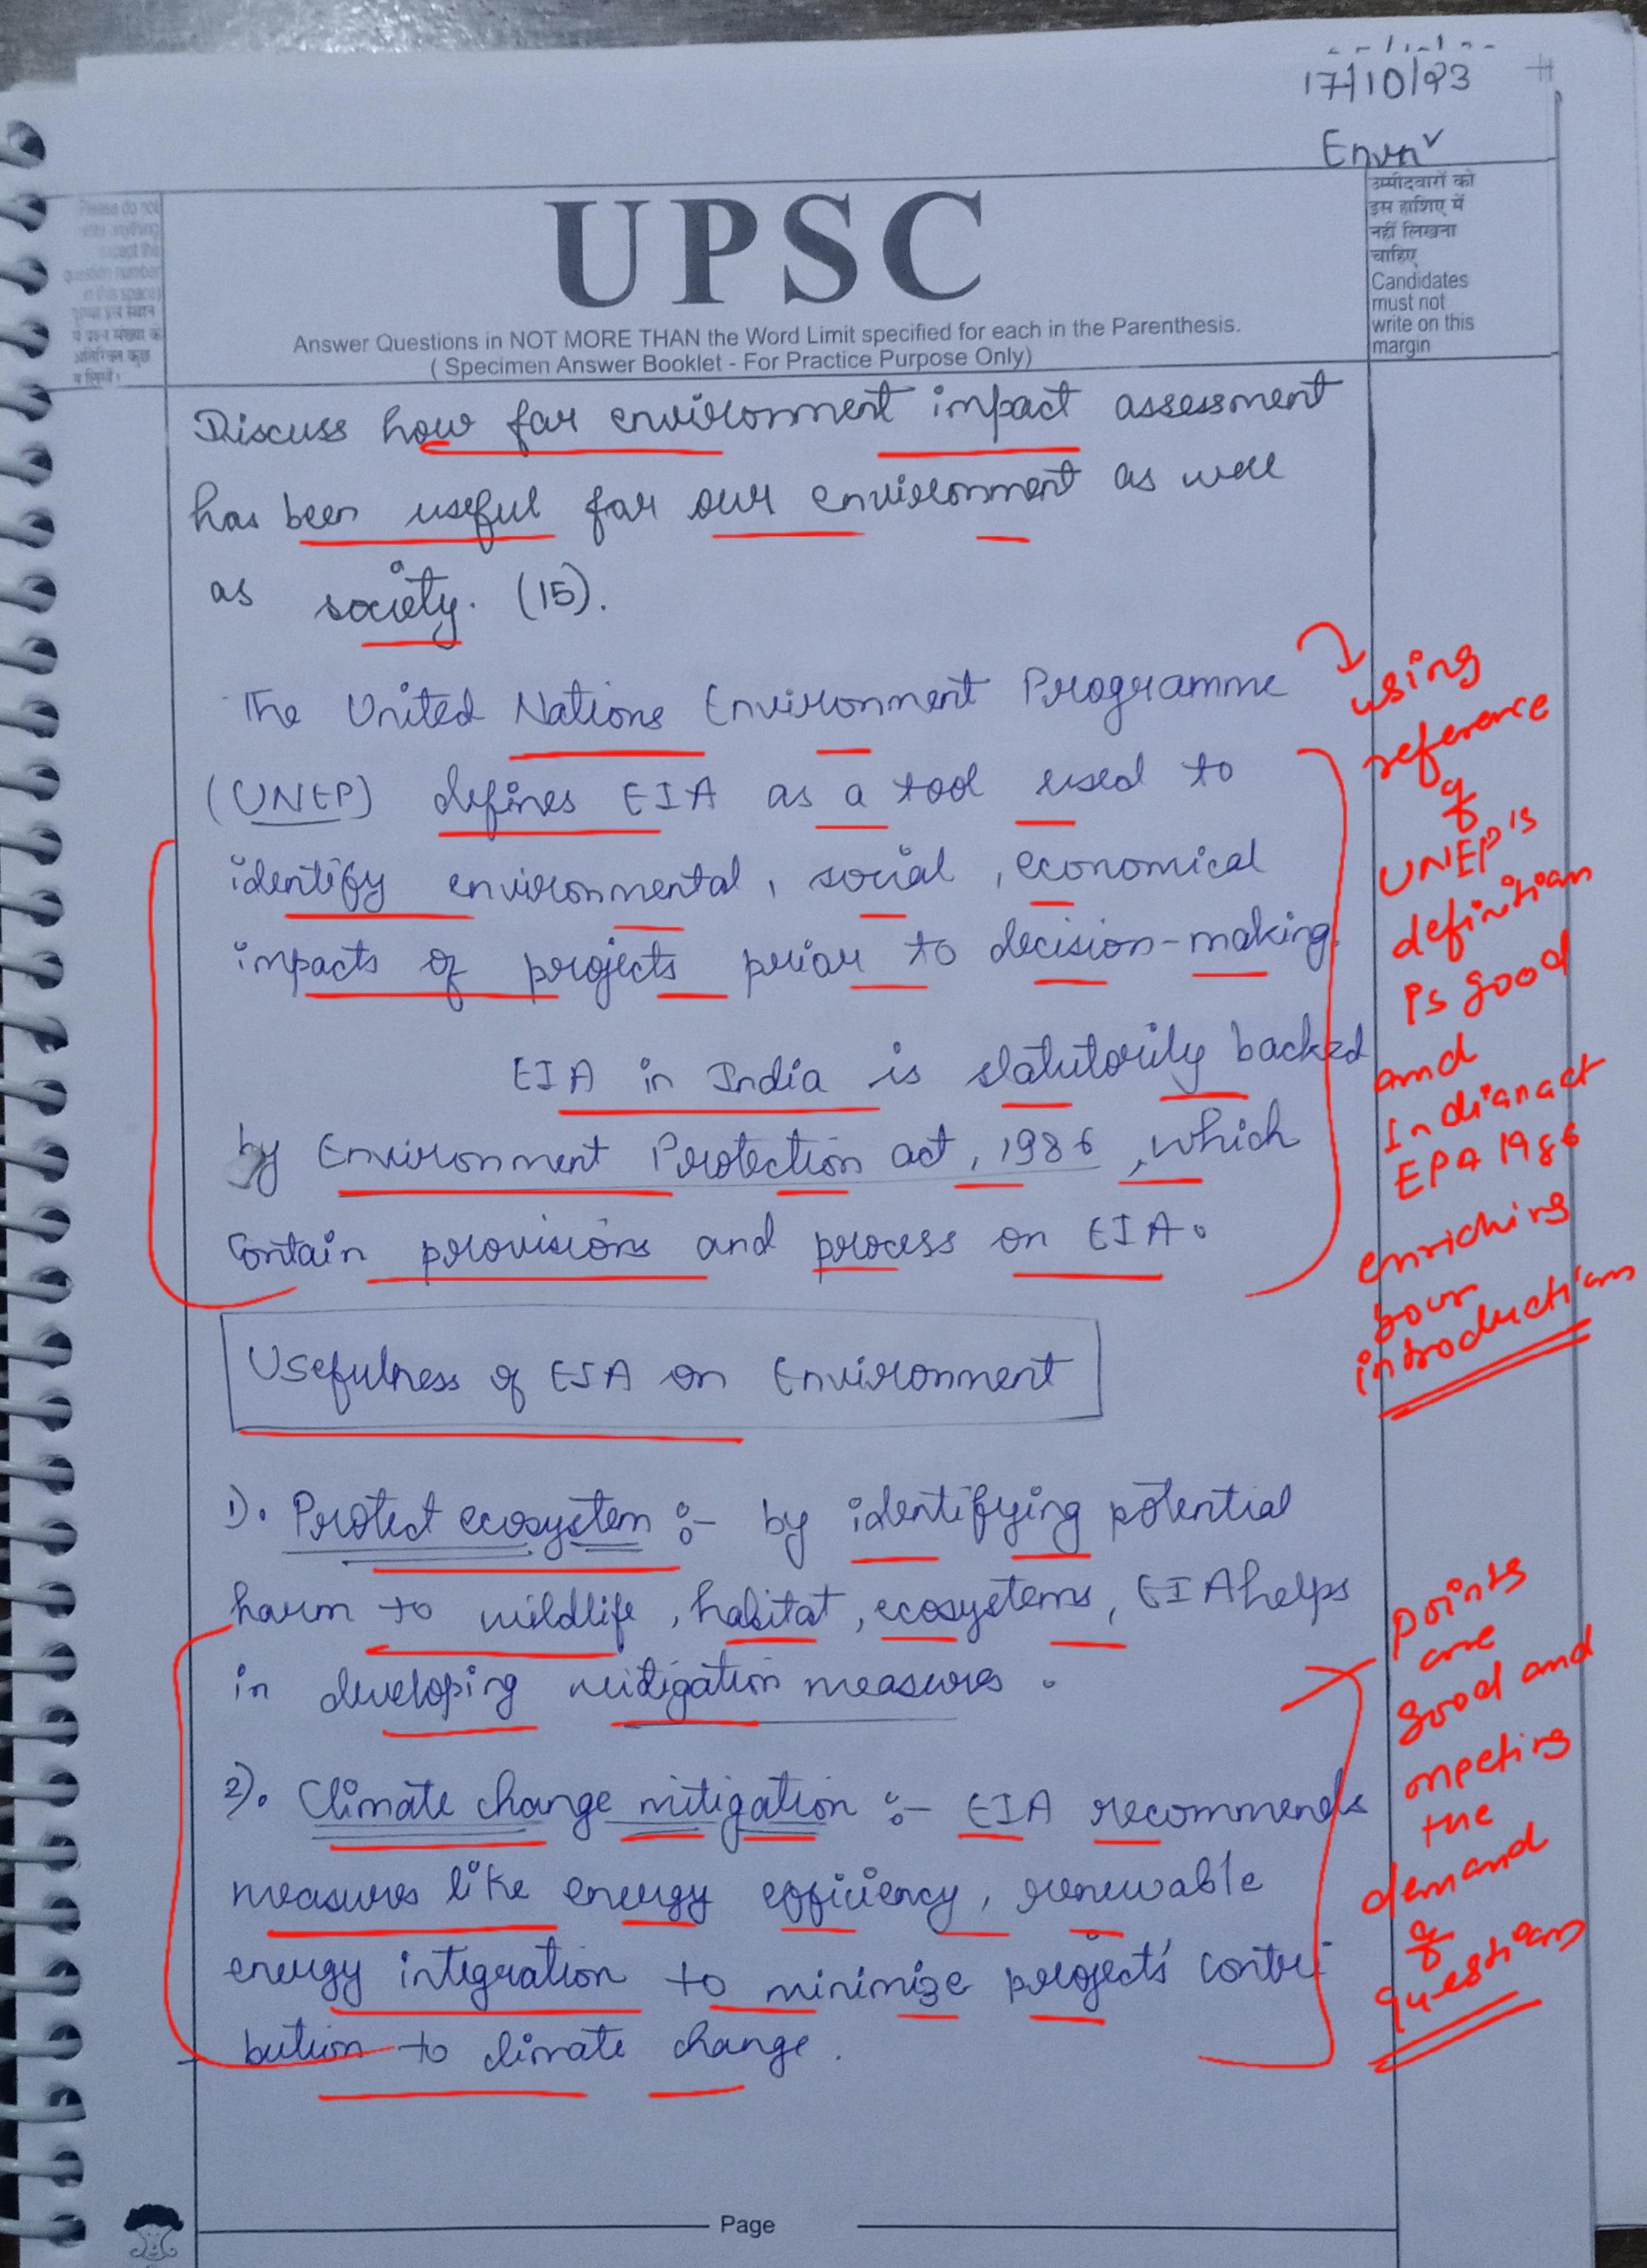 17/10/23
Envn
Please do not
write anything
except the
question number
in this space
UPSC
Answer Questions in NOT MORE THAN the Word Limit specified for each in the Parenthesis.
( Specimen Answer Booklet - For Practice Purpose Only)
उम्मीदवारों को
इस हाशिए में
नहीं लिखना
चाहिए
Candidates
must not
write on this
margin
Discuss how far environment impact assessment
has been useful for our environment as well
as society. (15).
The United Nations Environment Programme
(UNEP) defines EIA as a tool used to
identify environmental, social, economical
impacts of projects prior to decision-making.
EIA in India is statutorily backed
by Environment Protection act, 1986, which
contain provisions and process on EIA.
using
reference
of
UNEP's
definition
is good
and
Indian act
EPA 1986
enriching
your
introduction
Usefulness of EIA on Environment
1). Protect ecosystem :- by identifying potential
harm to wildlife, habitat, ecosystems, EIA helps
in developing mitigation measures.
2). Climate change mitigation :- EIA recommends
measures like energy efficiency, renewable
energy integration to minimize projects' contri-
bution to climate change.
points
are
good and
meeting
the
demand
of
question
Page